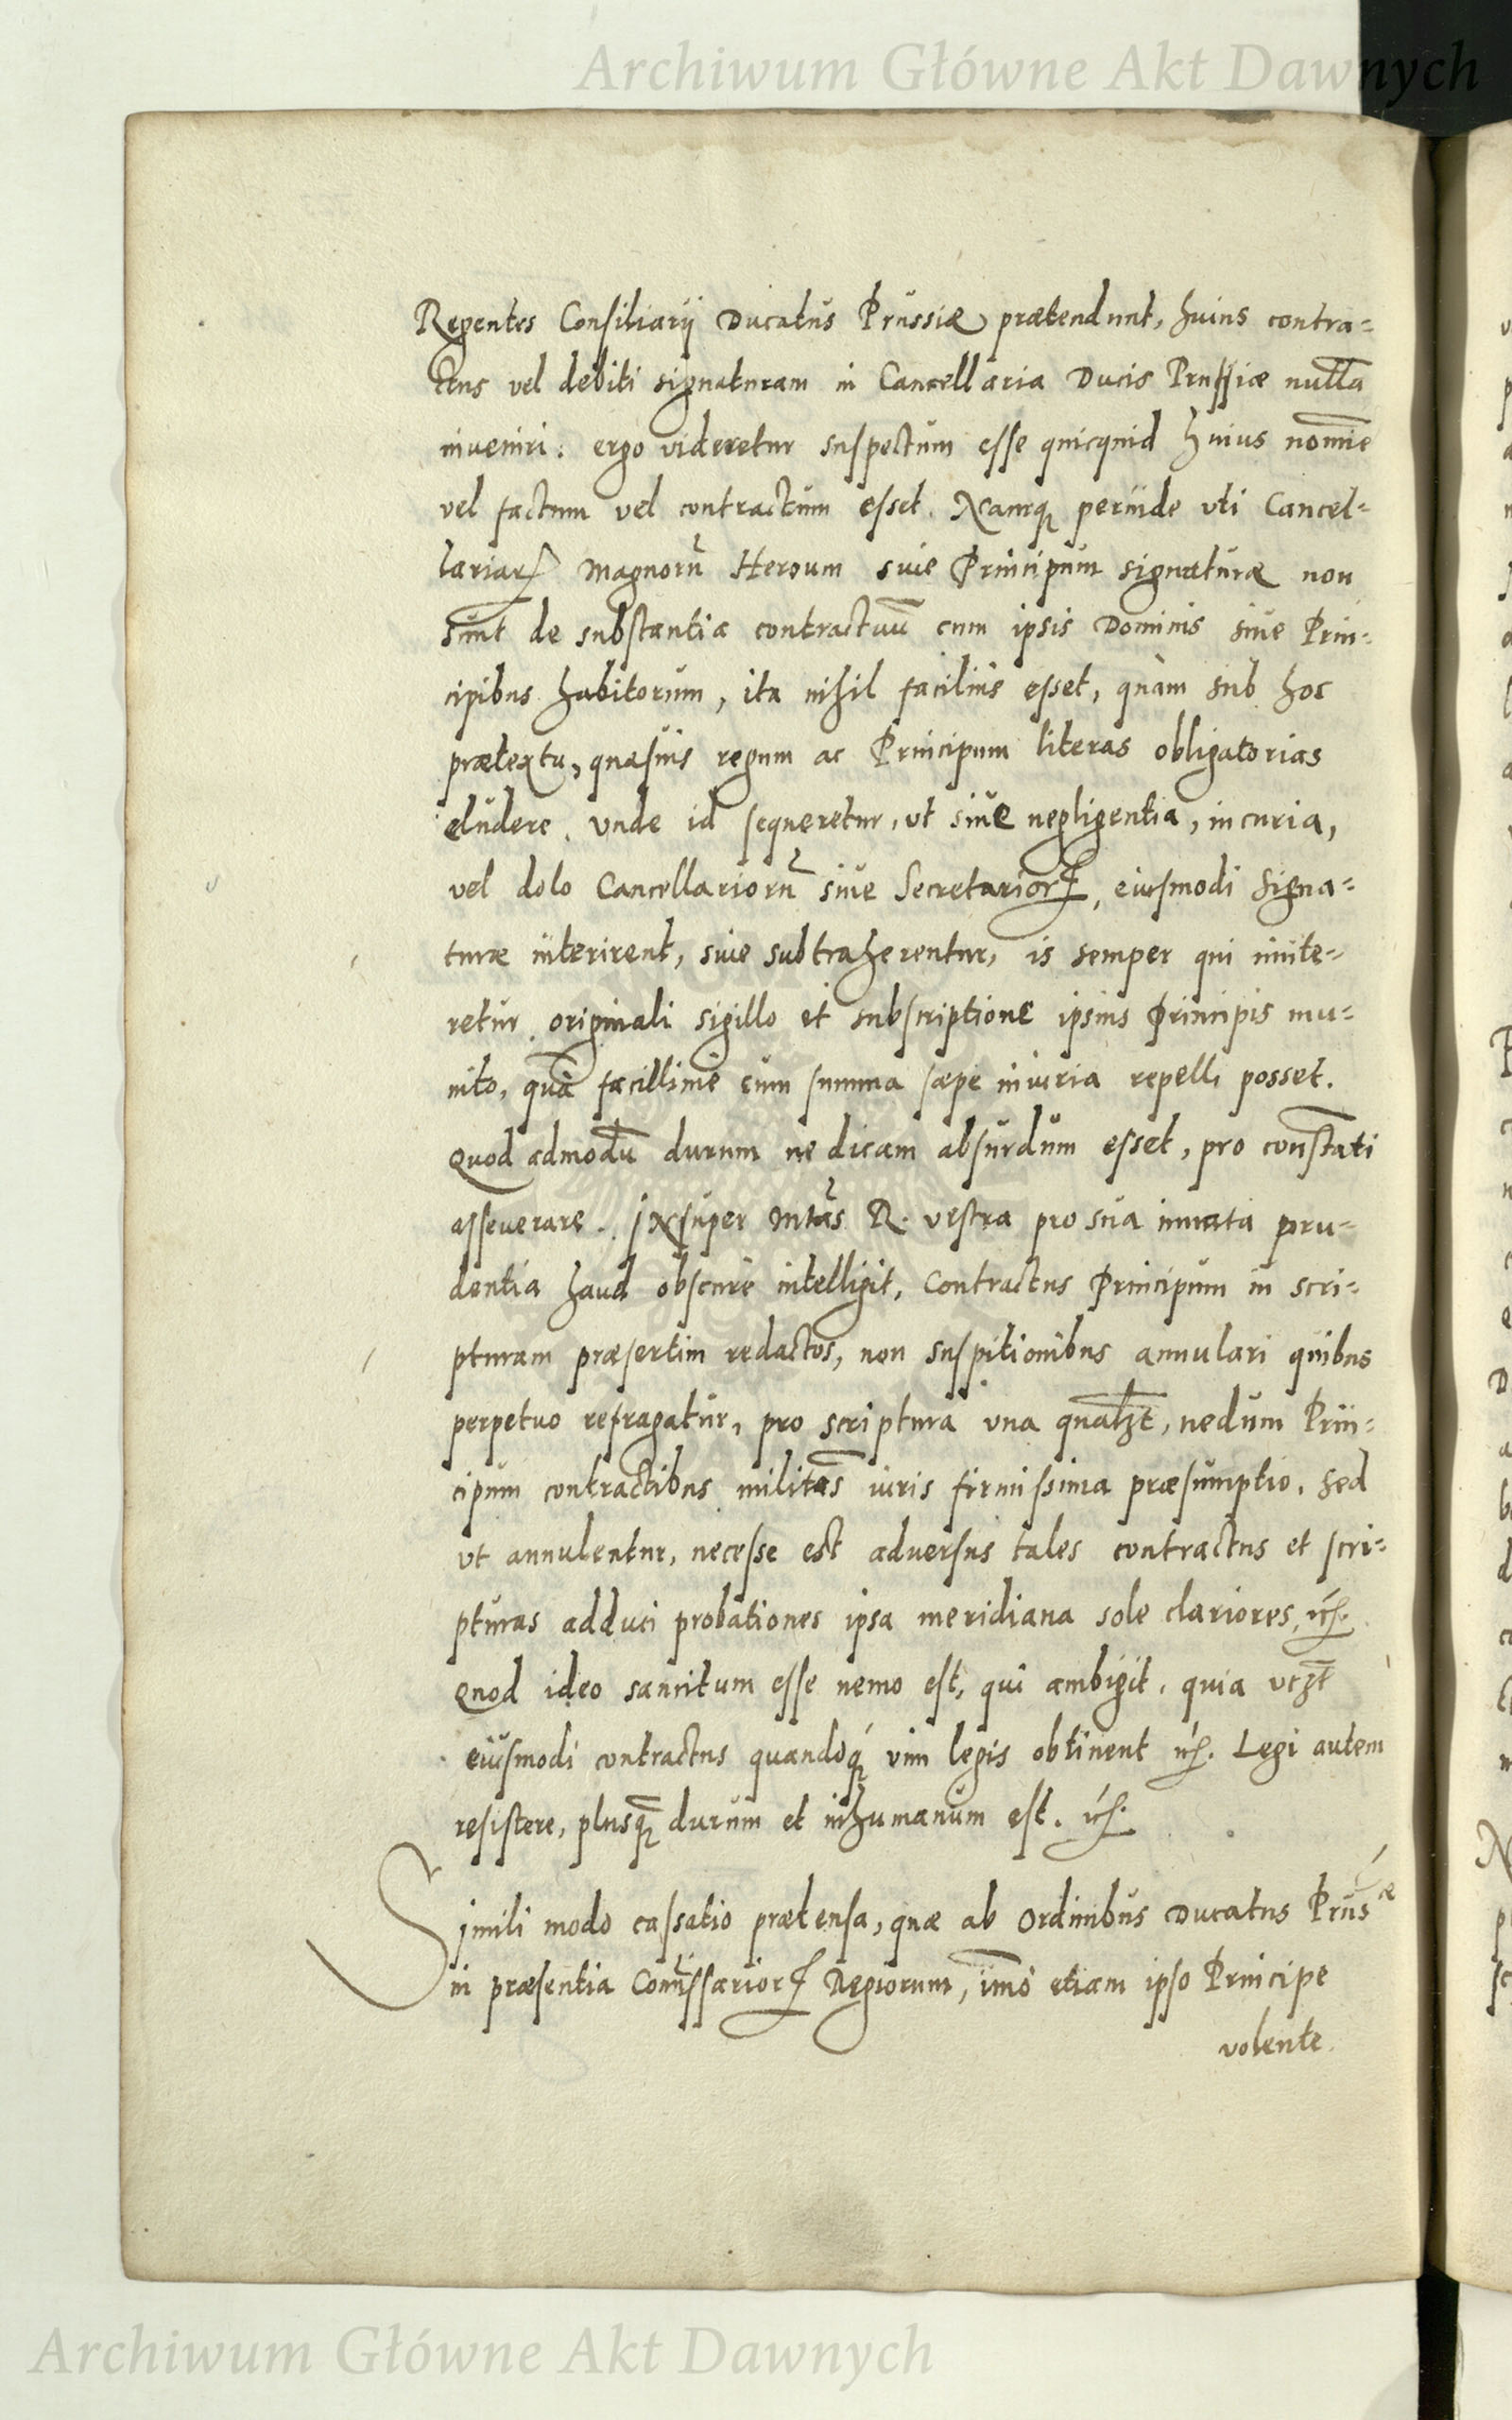 Archiwum Główne Akt Dawnych
Regentes Consiliarij Ducatus Prussiæ prætendunt, huius contra=
ctus vel debiti signaturam in Cancellaria Ducis Prussiæ nulla
inveniri: ergo videretur suspectum esse quicquid huius nomīe
vel factum vel contractum esset. Namq perinde uti Cancel=
lariarꝝ Magnorū Heroum sive Principum signaturæ non
sunt de substantia contractuū cum ipsis Dominis sive Prin=
cipibus habitorum, ita nihil facilius esset, quàm sub hoc
prætextu, quasuis regum ac Principum literas obligatorias
eludere. Unde id sequeretur, ut sive negligentia, incuria,
vel dolo Cancellariorū sive Secretariorꝝ, eiusmodi signa=
turæ interirent, sive subtraherentur, is semper qui nite=
retur originali sigillo et subscriptione ipsius Principis mu=
nito, quā facillime cum summa sæpe iniuria repelli posset.
Quod admodū durum ne dicam absurdum esset, pro constāti
asseverare. Insuper Mtās R. vestra pro sua innata pru=
dentia haud obscurè intelligit, Contractus Principum in scri=
pturam præsertim redactos, non suspitionibus annulari quibus
perpetuo refragatur, pro scriptura una
nedum Prin=
cipum contractibus militās iuris firmissima præsumptio. Sed
ut annulentur, necesse est adversus tales contractus et scri=
pturas adduci probationes ipsa meridiana sole clariores,
Quod ideo sancitum esse nemo est, qui ambigit. quia
eiusmodi contractus quandoq́ vim legis obtinent
Legi autem
resistere, plusq̄ durum et inhumanum est.
Simili modo cassatio prætensa, quæ ab Ordinibus Ducatus Prusæ
in præsentia Comissariorꝝ Regiorum, imò etiam ipso Principe
volente
Archiwum Główne Akt Dawnych